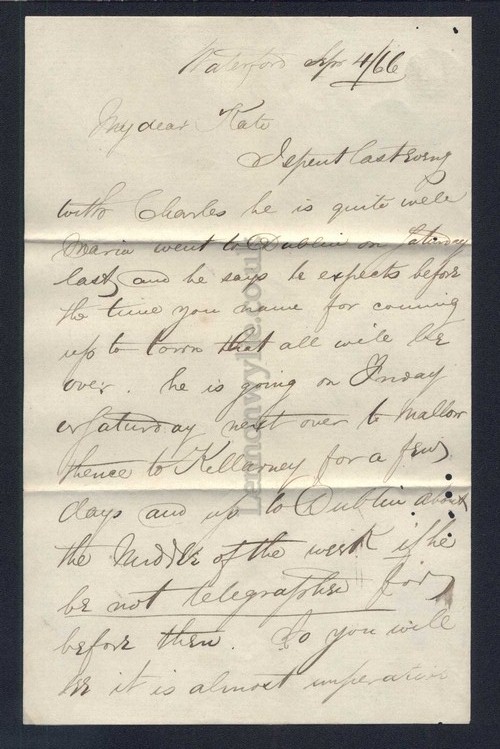 Waterford Apr 4/66
My dear Kate
I spent last eveng
with Charles he is quite well
Maria went to Dublin on Saturday
last, and he says he expects before
the time you name for coming
up to town that all will be
over. he is going on Friday
or Saturday next over to Mallow
thence to Killarney for a few
days and up to Dublin about
the Middle of the week if he
be not telegraphed for
before then. So you will
see it is almost imperative